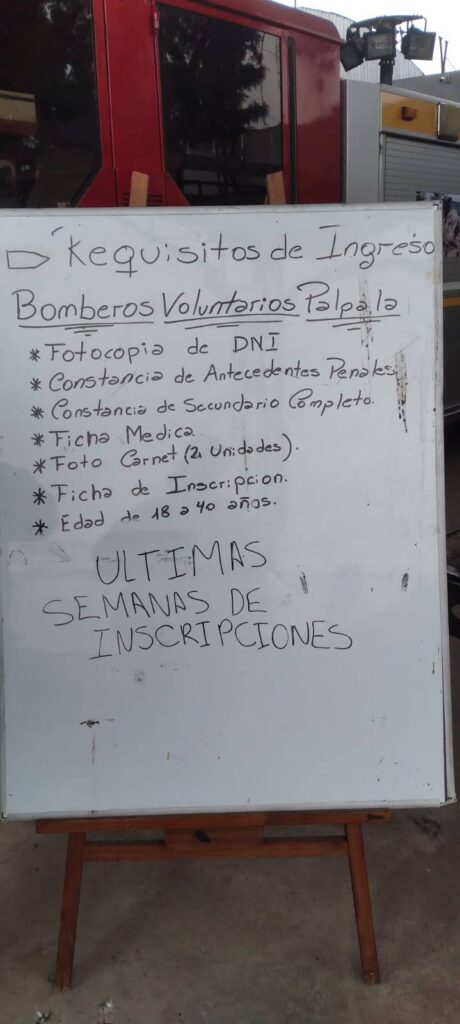 Requisitos de Ingreso
Bomberos Voluntarios Palpala
* Fotocopia de DNI
* Constancia de Antecedentes Penales
* Constancia de Secundario Completo.
* Ficha Medica.
* Foto Carnet (2 Unidades).
* Ficha de Inscripcion.
* Edad de 18 a 40 años.
ULTIMAS
SEMANAS DE
INSCRIPCIONES